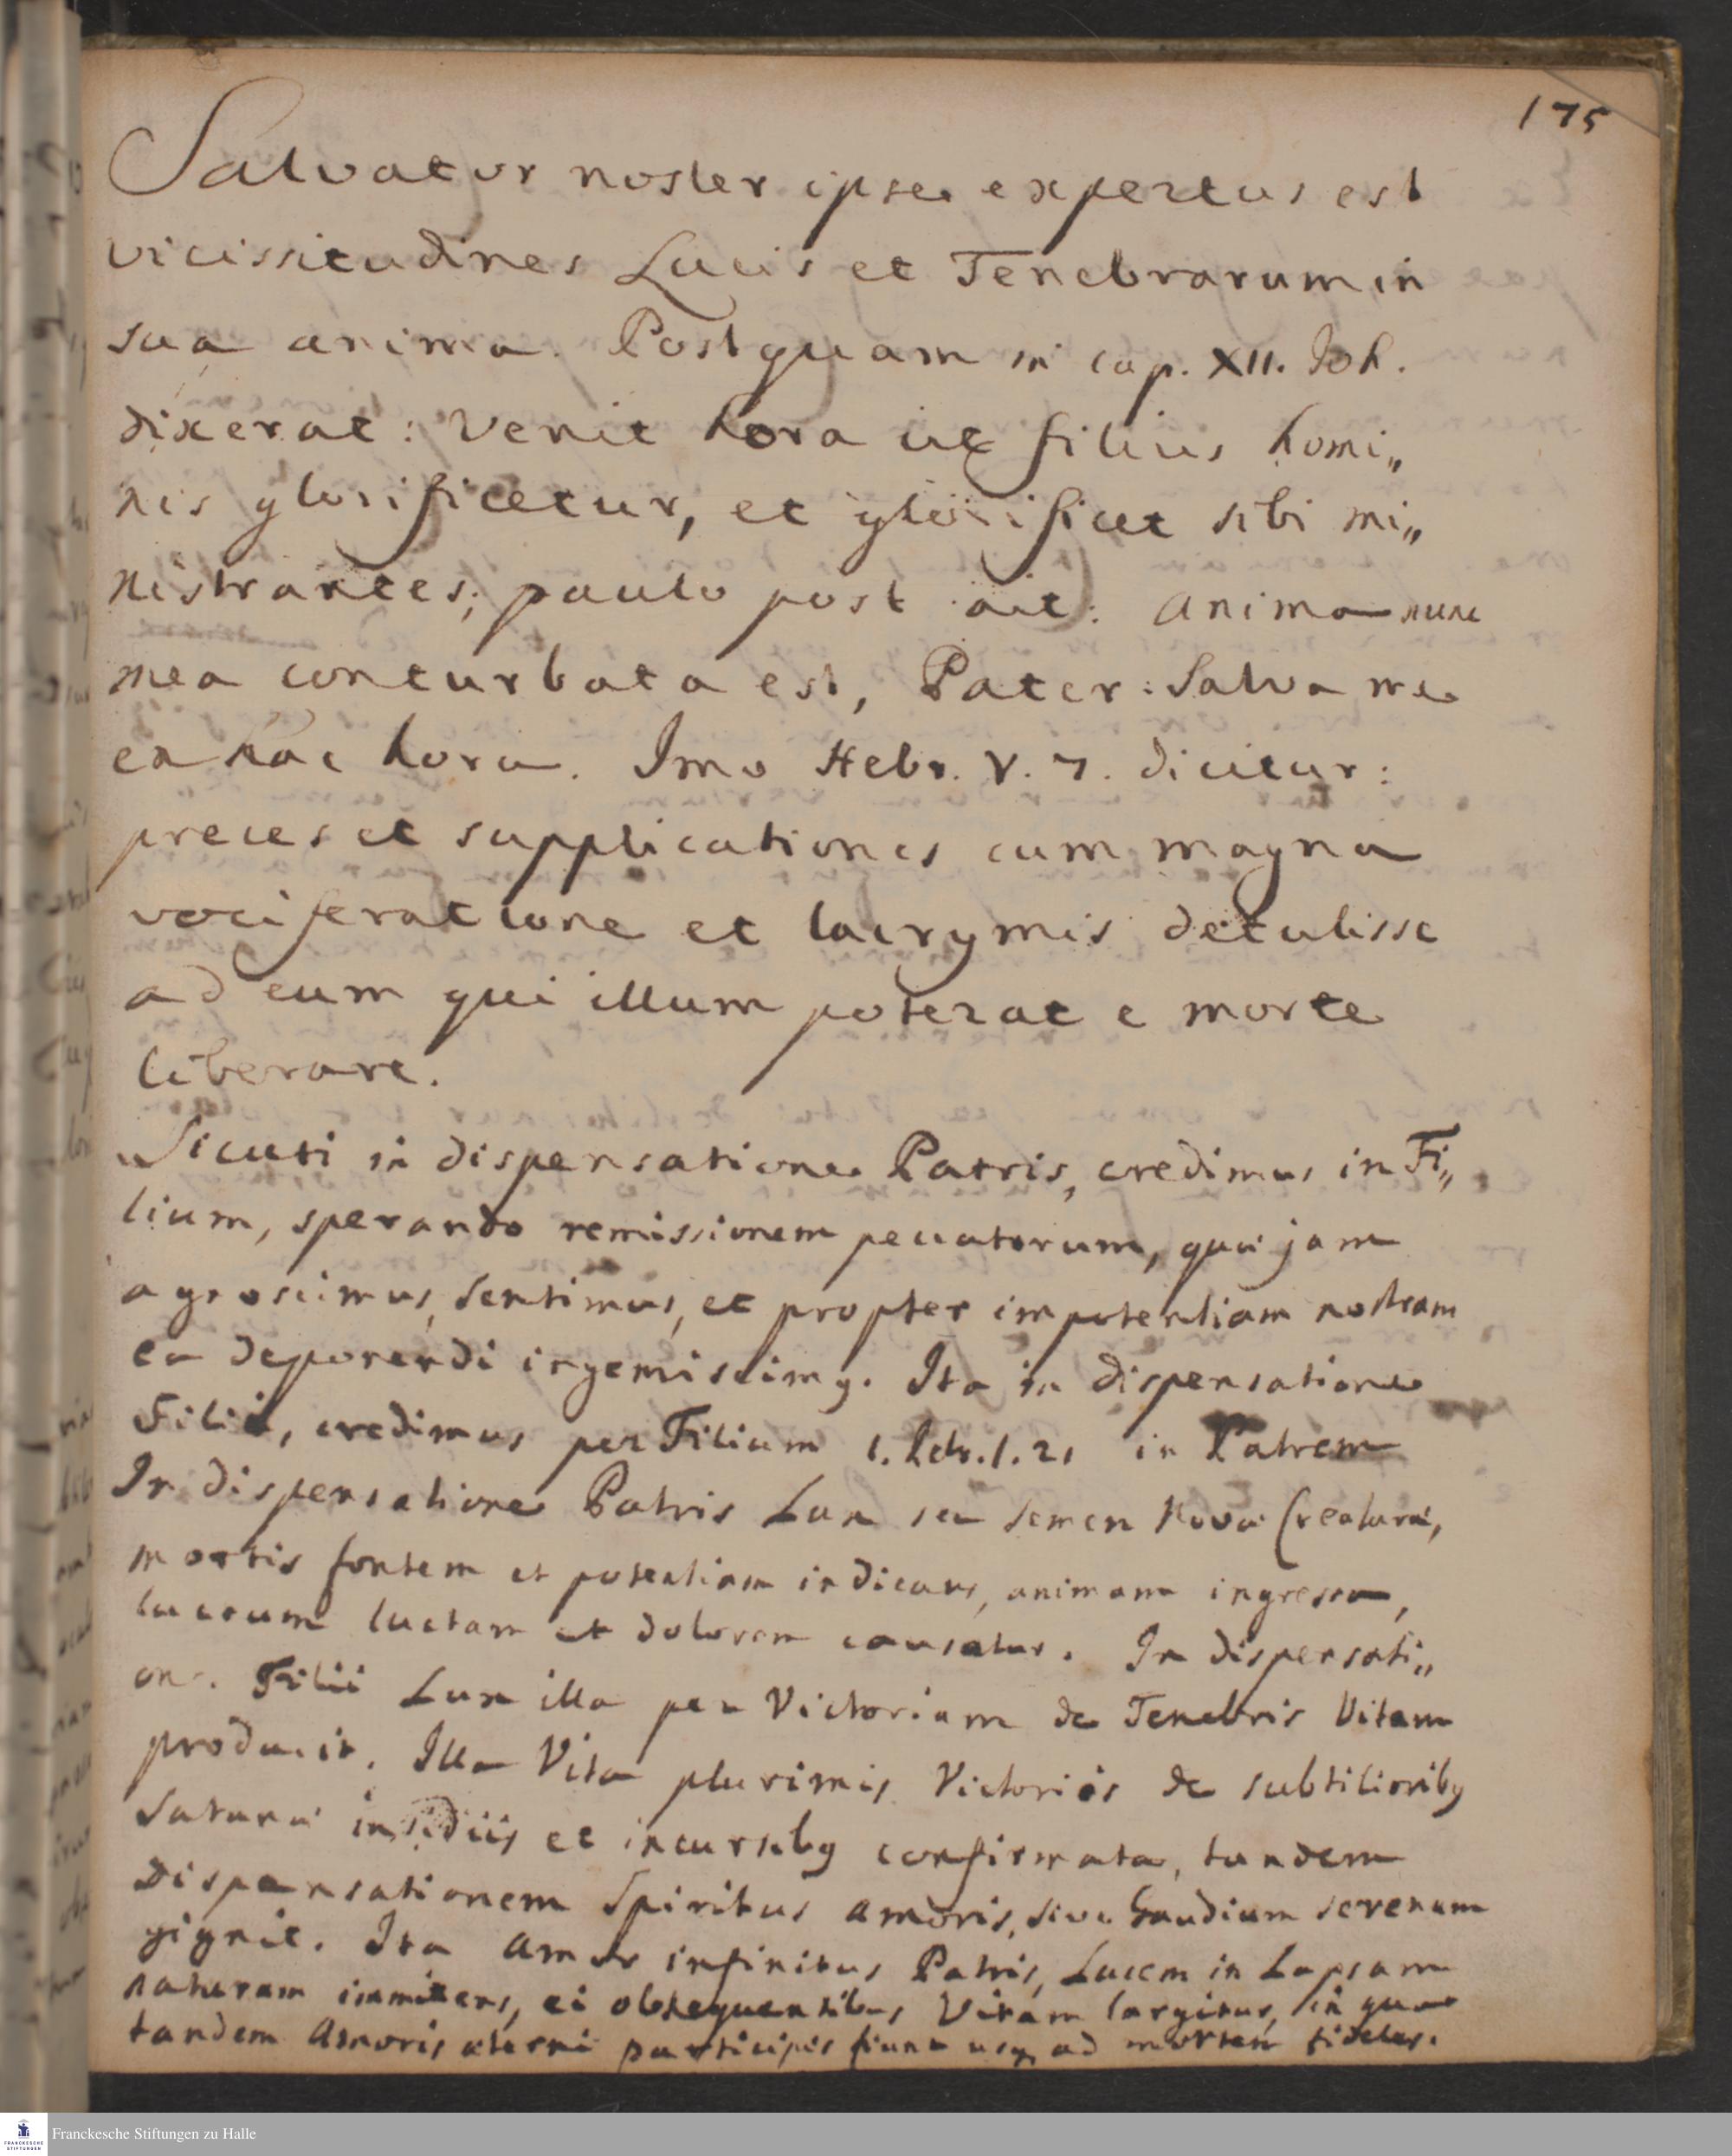 175
Salvator noster ipse expertus est
vicissitudines Lucis et Tenebrarum in
sua anima. Postquam in cap. XII. Joh.
dixerat: Venit hora ut filius homi„
nis glorificetur, et glorificet sibi mi„
nistrantes; paulo post ait: Anima nunc
mea conturbata est, Pater: Salva me
ex hac hora. Imo Hebr. V. 7. dicitur:
preces et supplicationes cum magna
vociferatione et lacrymis detulisse
ad eum qui illum poterat e morte
liberare.
Sicuti in dispensatione Patris, credimus in Fi„
lium, sperando remissionem peccatorum, quæ jam
agnoscimus, sentimus, et propter impotentiam nostram
ea deponendi ingemiscimꝰ. Ita in dispensatione
Filii, credimus per Filium 1. Petr. 1. 21 in Patrem
In dispensatione Patris Lux seu semen Novæ Creaturæ,
mortis fontem et potentiam indicans, animam ingressa,
luctum luctam et dolorem causatur. In dispensati„
one Filii Lux illa per Victoriam de Tenebris Vitam
producit. Illa Vita plurimis Victoriis de subtilioribꝰ
Satanæ insidiis et incursibꝰ confirmata, tandem
Dispensationem Spiritus amoris, sive Gaudium serenum
gignit. Ita Amor infinitus Patris, Lucem in Lapsam
naturam immittens, ei obsequentibus Vitam largitur, in qua
tandem Amoris æterni participes fiunt usqꝫ ad mortem fideles.
Franckesche Stiftungen zu Halle
FRANCKESCHE
STIFTUNGEN